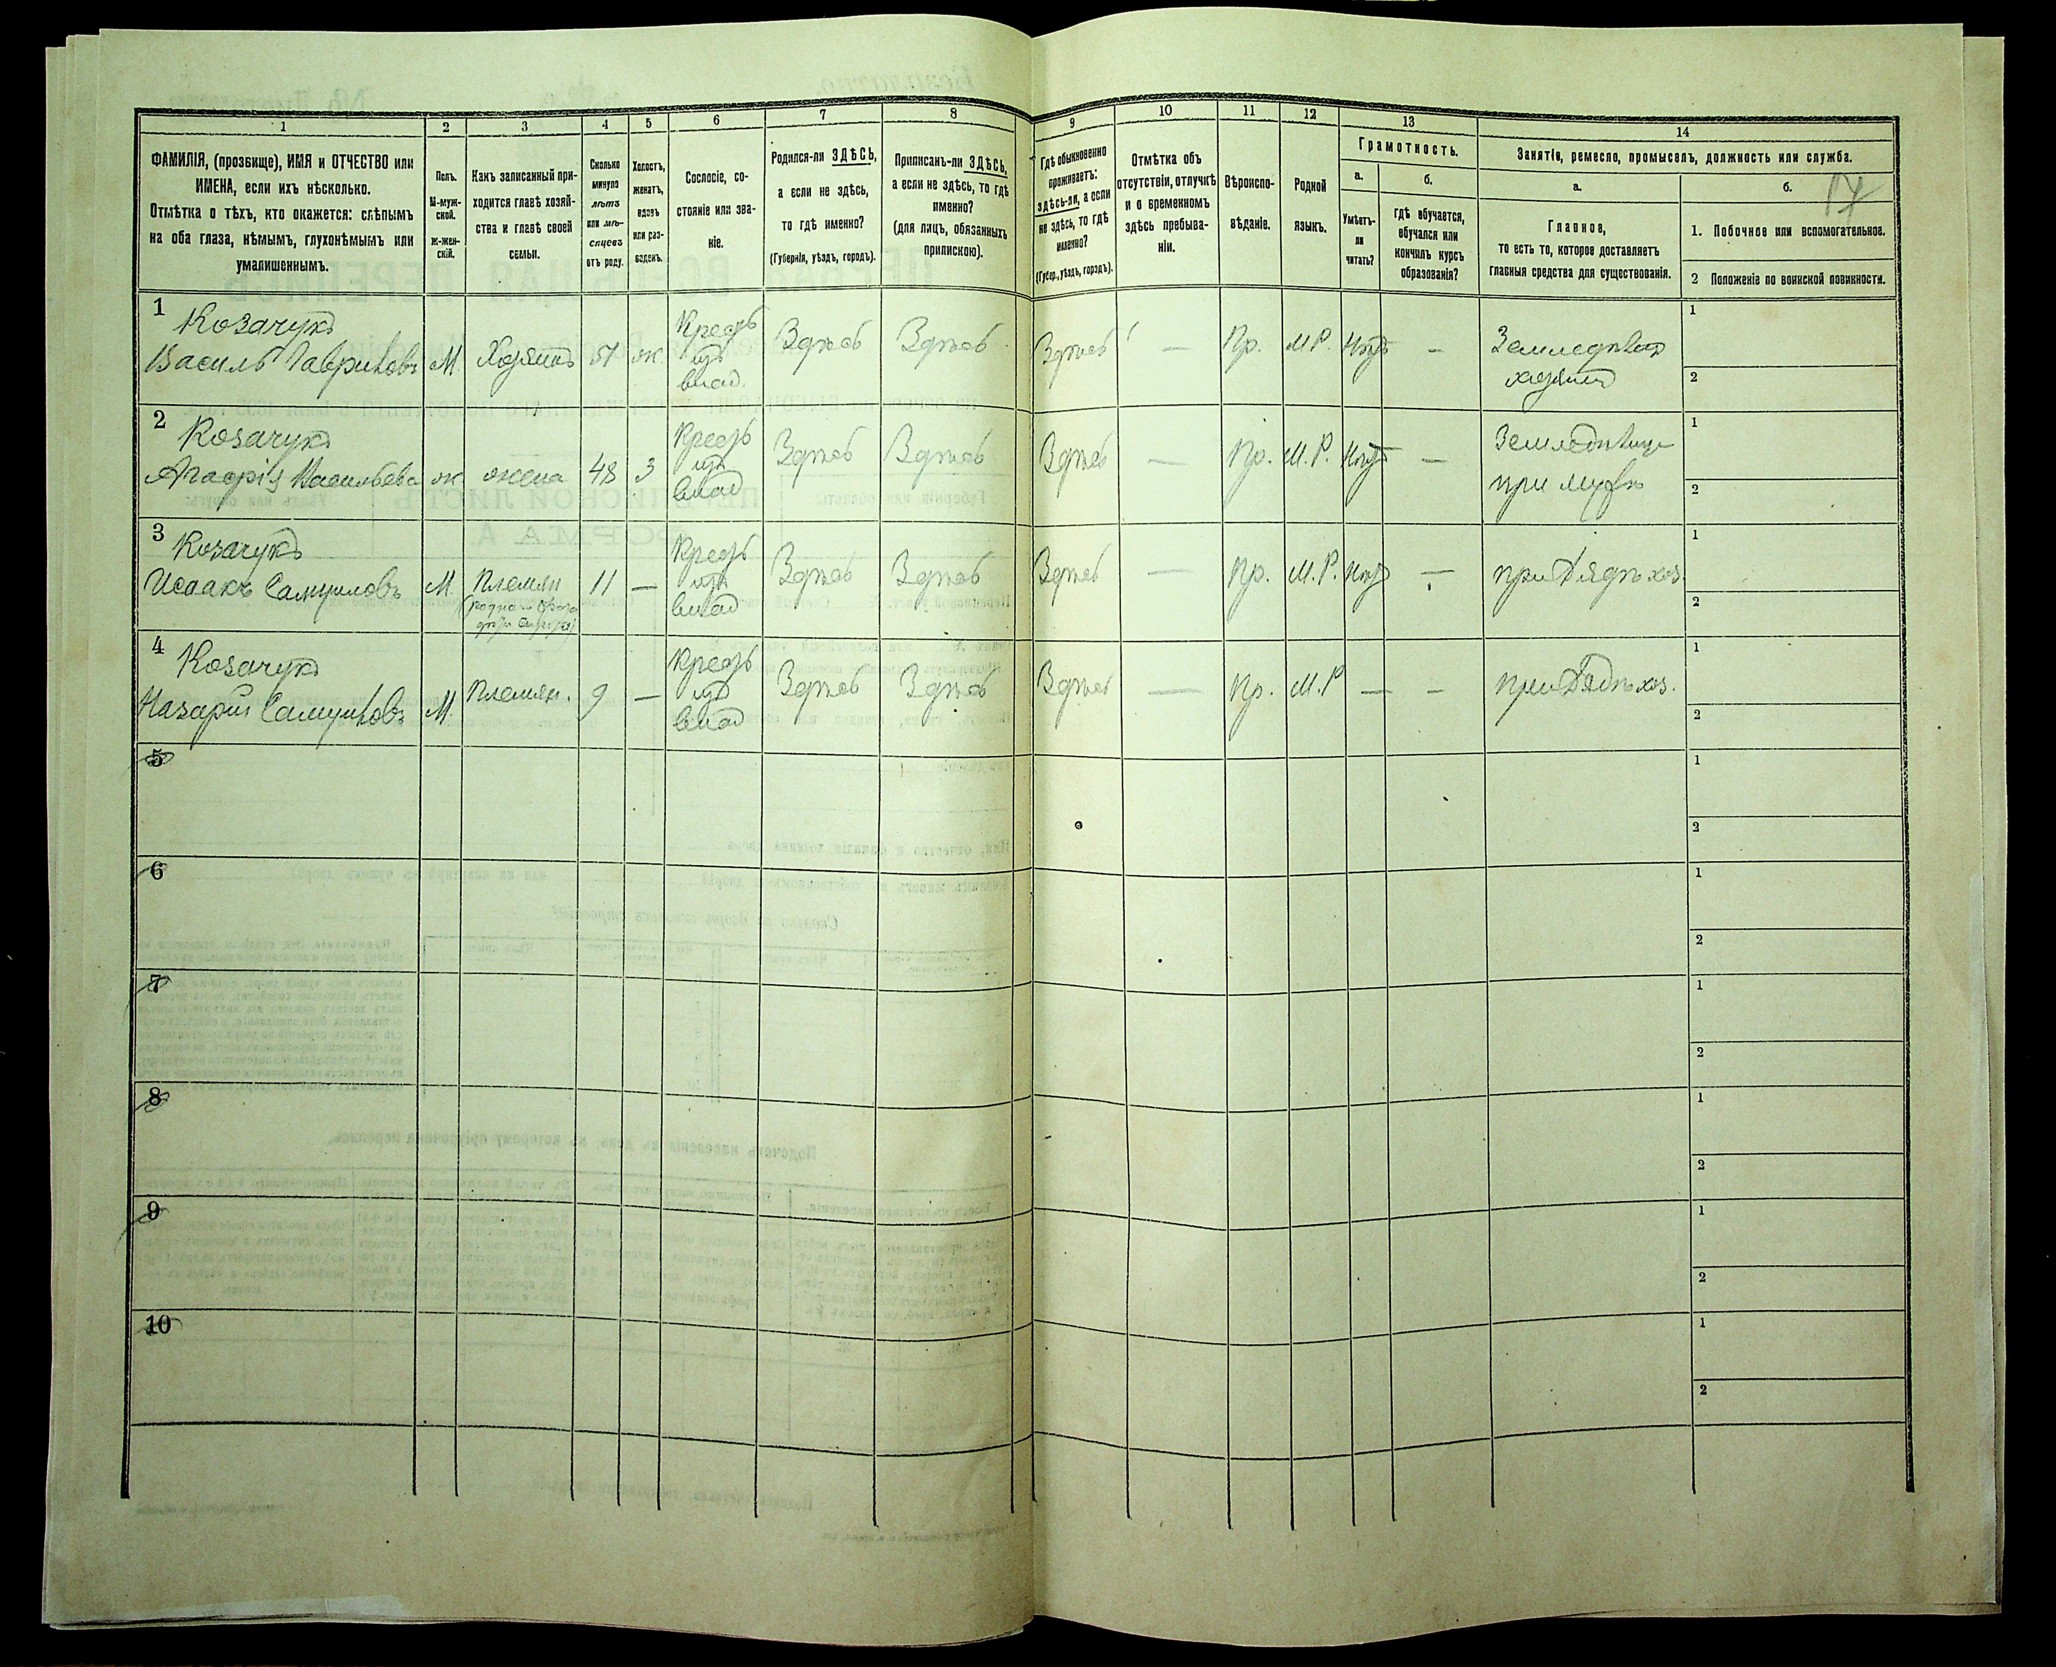 17
1
2
3
4
5
6
7
8
9
10
11
12
13
14
ФАМИЛІЯ, (прозвище), ИМЯ и ОТЧЕСТВО или
ИМЕНА, если ихъ нѣсколько.
Отмѣтка о тѣхъ, кто окажется: слѣпымъ
на оба глаза, нѣмымъ, глухонѣмымъ или
умалишеннымъ.
Полъ.
М-муж-
ской.
ж-жен-
скій.
Какъ записанный при-
ходится главѣ хозяй-
ства и главѣ своей
семьи.
Сколько
минуло
лѣтъ
или мѣ-
сяцевъ
отъ роду.
Холостъ,
женатъ,
вдовъ
или раз-
веденъ.
Сословіе, со-
стояніе или зва-
ніе.
Родился-ли ЗДѢСЬ,
а если не здѣсь,
то гдѣ именно?
(Губернія, уѣздъ, городъ).
Приписанъ-ли ЗДѢСЬ,
а если не здѣсь, то гдѣ
именно?
(для лицъ, обязанныхъ
припискою).
Гдѣ обыкновенно
проживаетъ:
здѣсь-ли, а если
не здѣсь, то гдѣ
именно?
(Губер., уѣздъ, городъ).
Отмѣтка объ
отсутствіи, отлучкѣ
и о временномъ
здѣсь пребыва-
ніи.
Вѣроиспо-
вѣданіе.
Родной
языкъ.
Грамотность.
а.
Умѣетъ-
ли
читать?
б.
гдѣ обучается,
обучался или
кончилъ курсъ
образованія?
Занятіе, ремесло, промыселъ, должность или служба.
а.
Главное,
то есть то, которое доставляетъ
главныя средства для существованія.
б.
1. Побочное или вспомогательное.
2 Положеніе по воинской повинности.
1
Козачукъ
Василь Гавриловъ
М
Хозяинъ
51
ж
Кресть
изъ
влад.
Здѣсь
Здѣсь
Здѣсь
—
Пр.
М.Р.
Нѣтъ
—
Земледѣлецъ
хозяинъ
1
2
2
Козачукъ
Агафія Васильева
ж
жена
48
З
Кресть
изъ
влад
Здѣсь
Здѣсь
Здѣсь
—
Пр.
М.Р.
Нѣтъ
—
при мужѣ
1
2
3
Козачукъ
Исаакъ Самуиловъ
М
Племян
11
—
Кресть
изъ
влад
Здѣсь
Здѣсь
Здѣсь
—
Пр.
М.Р.
Нѣтъ
—
при Дядѣ хоз.
1
2
4
Козачукъ
Назарій Самуиловъ
М.
Племян.
9
—
Кресть
изъ
влад
Здѣсь
Здѣсь
Здѣсь
—
Пр.
М.Р
—
—
при Дядѣ хоз.
1
2
5
1
2
6
1
2
7
1
2
8
1
2
9
1
2
10
1
2